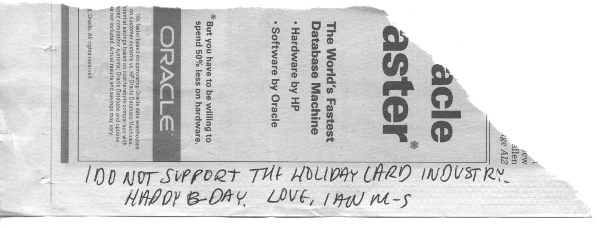 acle
aster*
The World's Fastest
Database Machine
• Hardware by HP
• Software by Oracle
*But you have to be willing to
spend 50% less on hardware.
ORACLE
ew
allen
ge A12
I DO NOT SUPPORT THE HOLIDAY CARD INDUSTRY.
HAPPY B-DAY. LOVE, IAN M-S